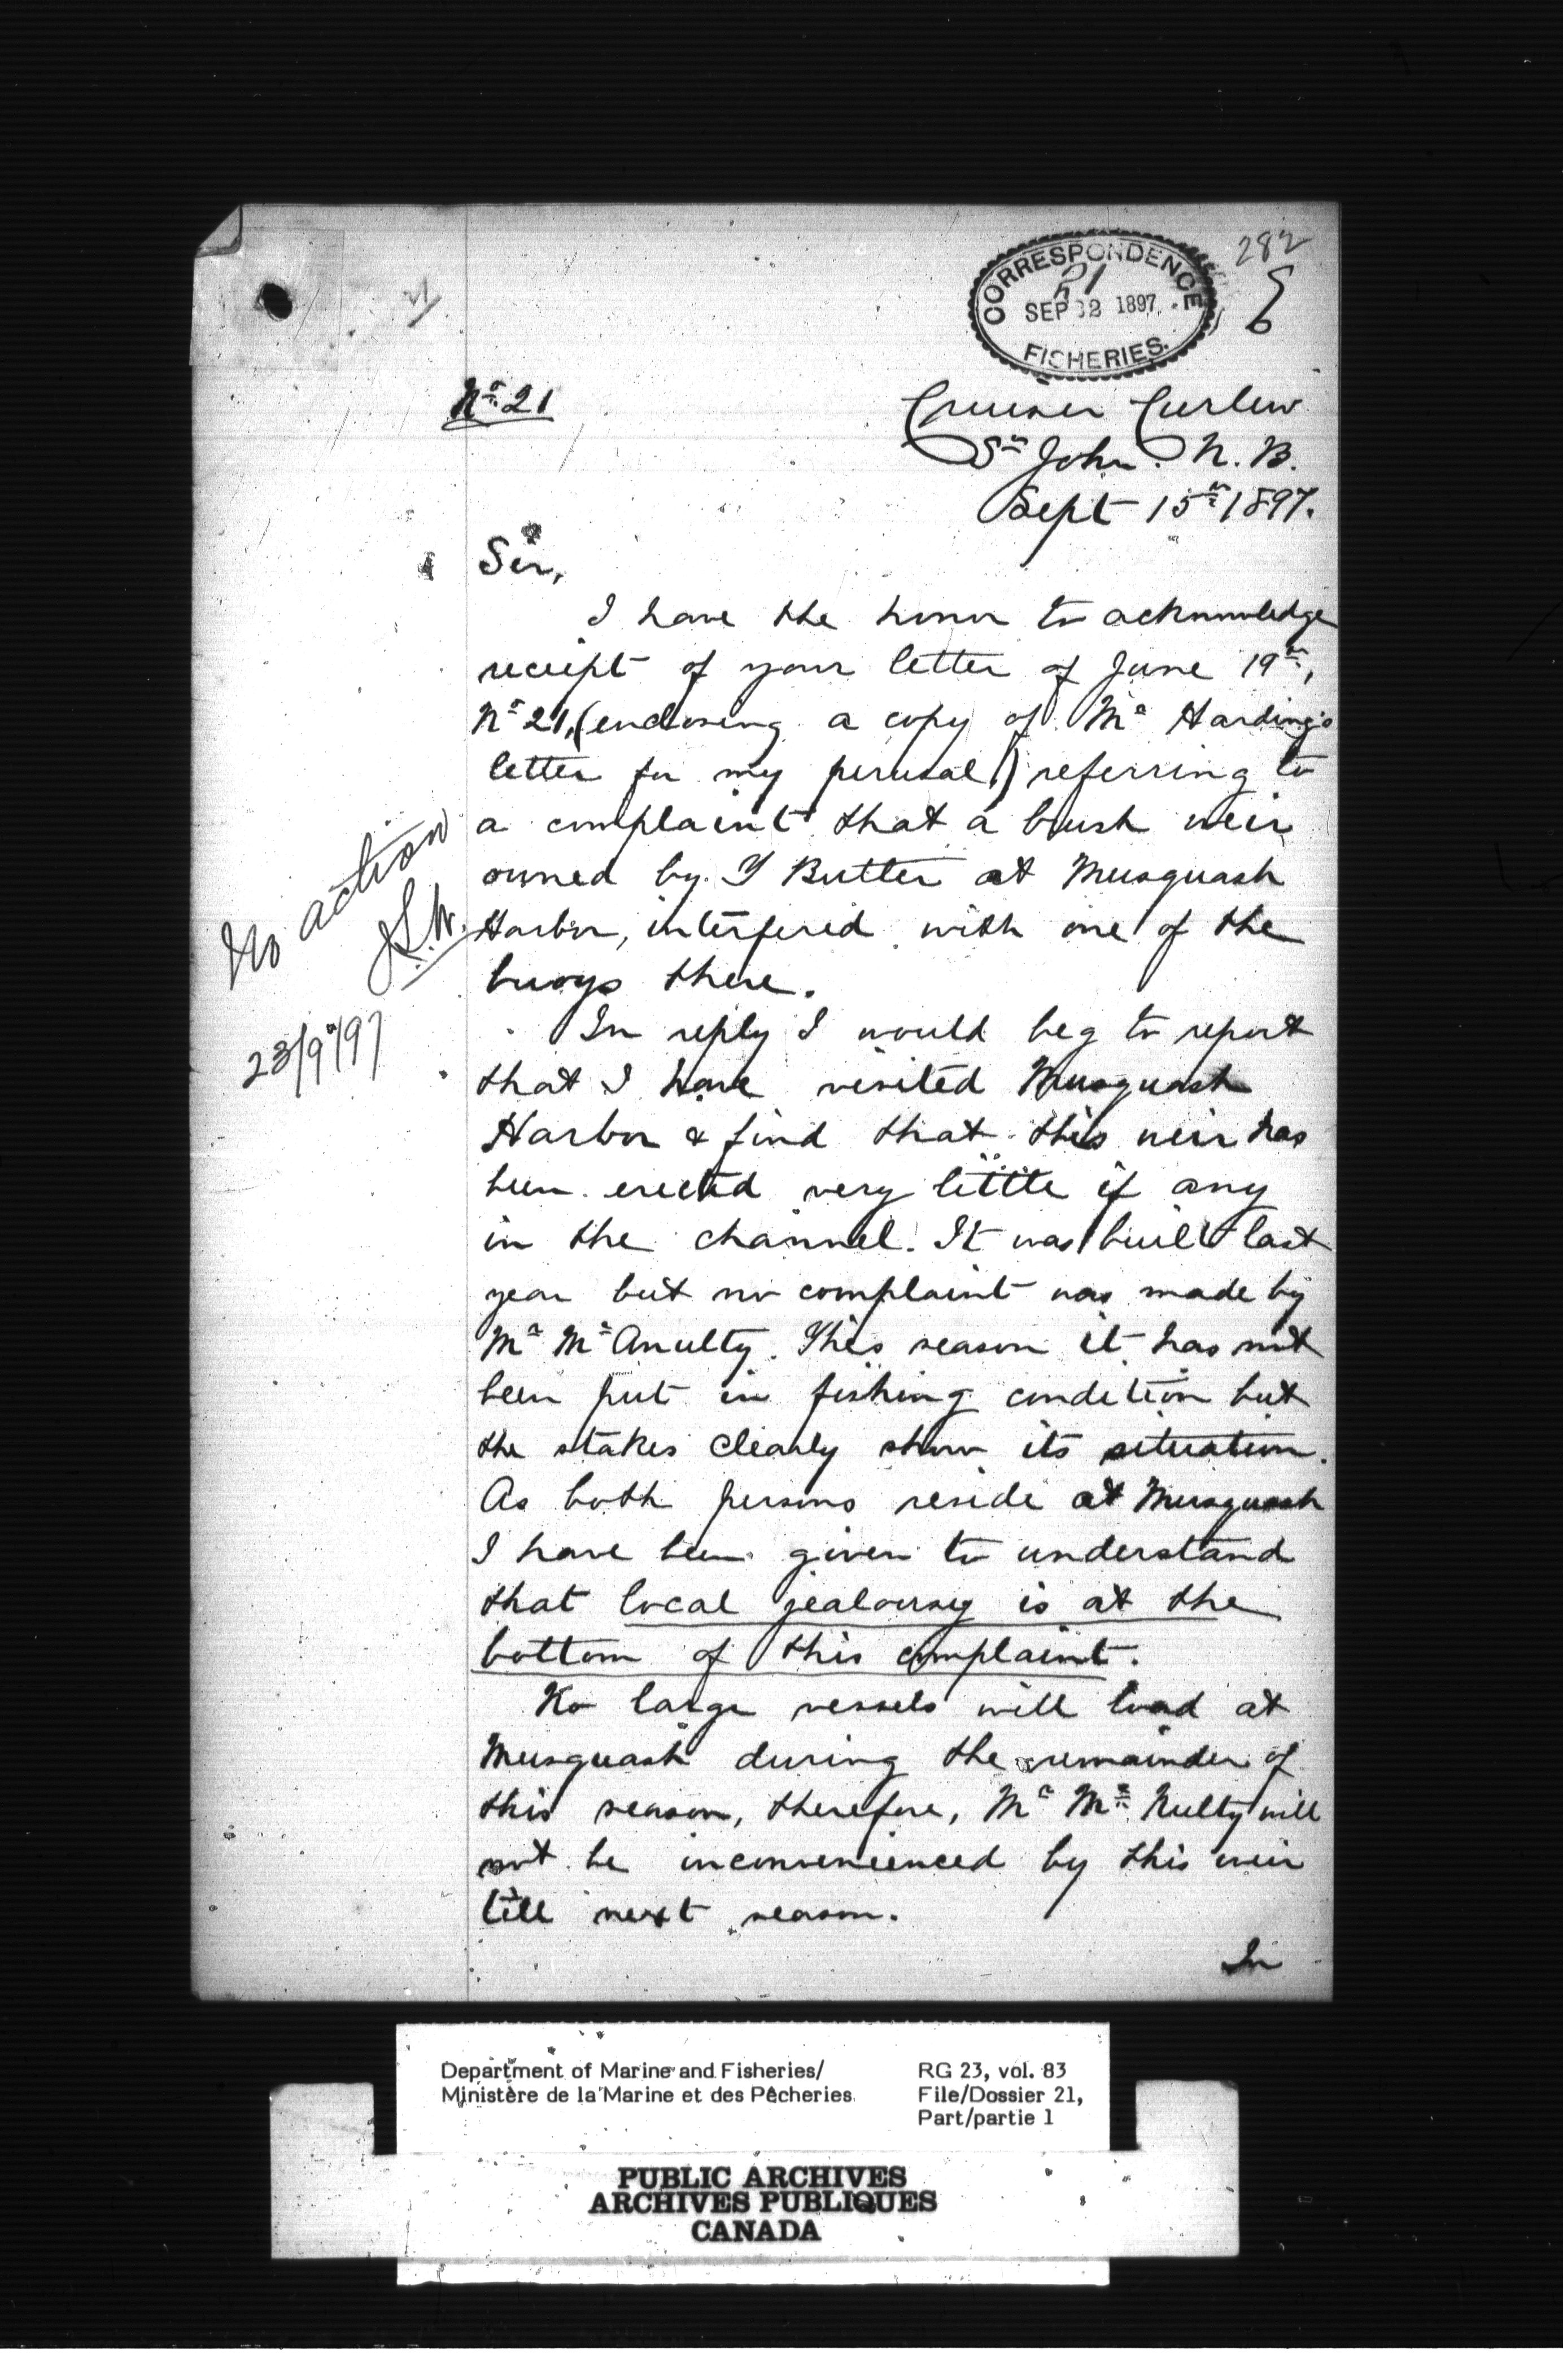 282
CORRESPONDENCE
21
SEP 22 1897
FISHERIES.
No 21
Cruiser Curlew
St John. N.B.
Sept 15th 1897.
Sir,
I have the honor to acknowledge
receipt of your letter of June 19th,
No 21, (enclosing a copy of Mr Harding's
letter for my perusal,) referring to
a complaint that a brush weir
owned by T Butler at Musquash
Harbor, interfered with one of the
buoys there.
In reply I would beg to report
that I have visited Musquash
Harbor & find that this weir has
been erected very little if any
in the channel. It was built last
year but no complaint was made by
Mr McAnulty. This season it has not
been put in fishing condition but
the stakes clearly show its situation.
As both persons reside at Musquash
I have been given to understand
that local jealousy is at the
bottom of this complaint.
No large vessels will load at
Musquash during the remainder of
this season, therefore, Mr McNulty will
not be inconvenienced by this weir
till next season.
In
No action
23/9/97
Department of Marine and Fisheries/
Ministère de la Marine et des Pêcheries
RG 23, vol. 83
File/Dossier 21,
Part/partie 1
PUBLIC ARCHIVES
ARCHIVES PUBLIQUES
CANADA